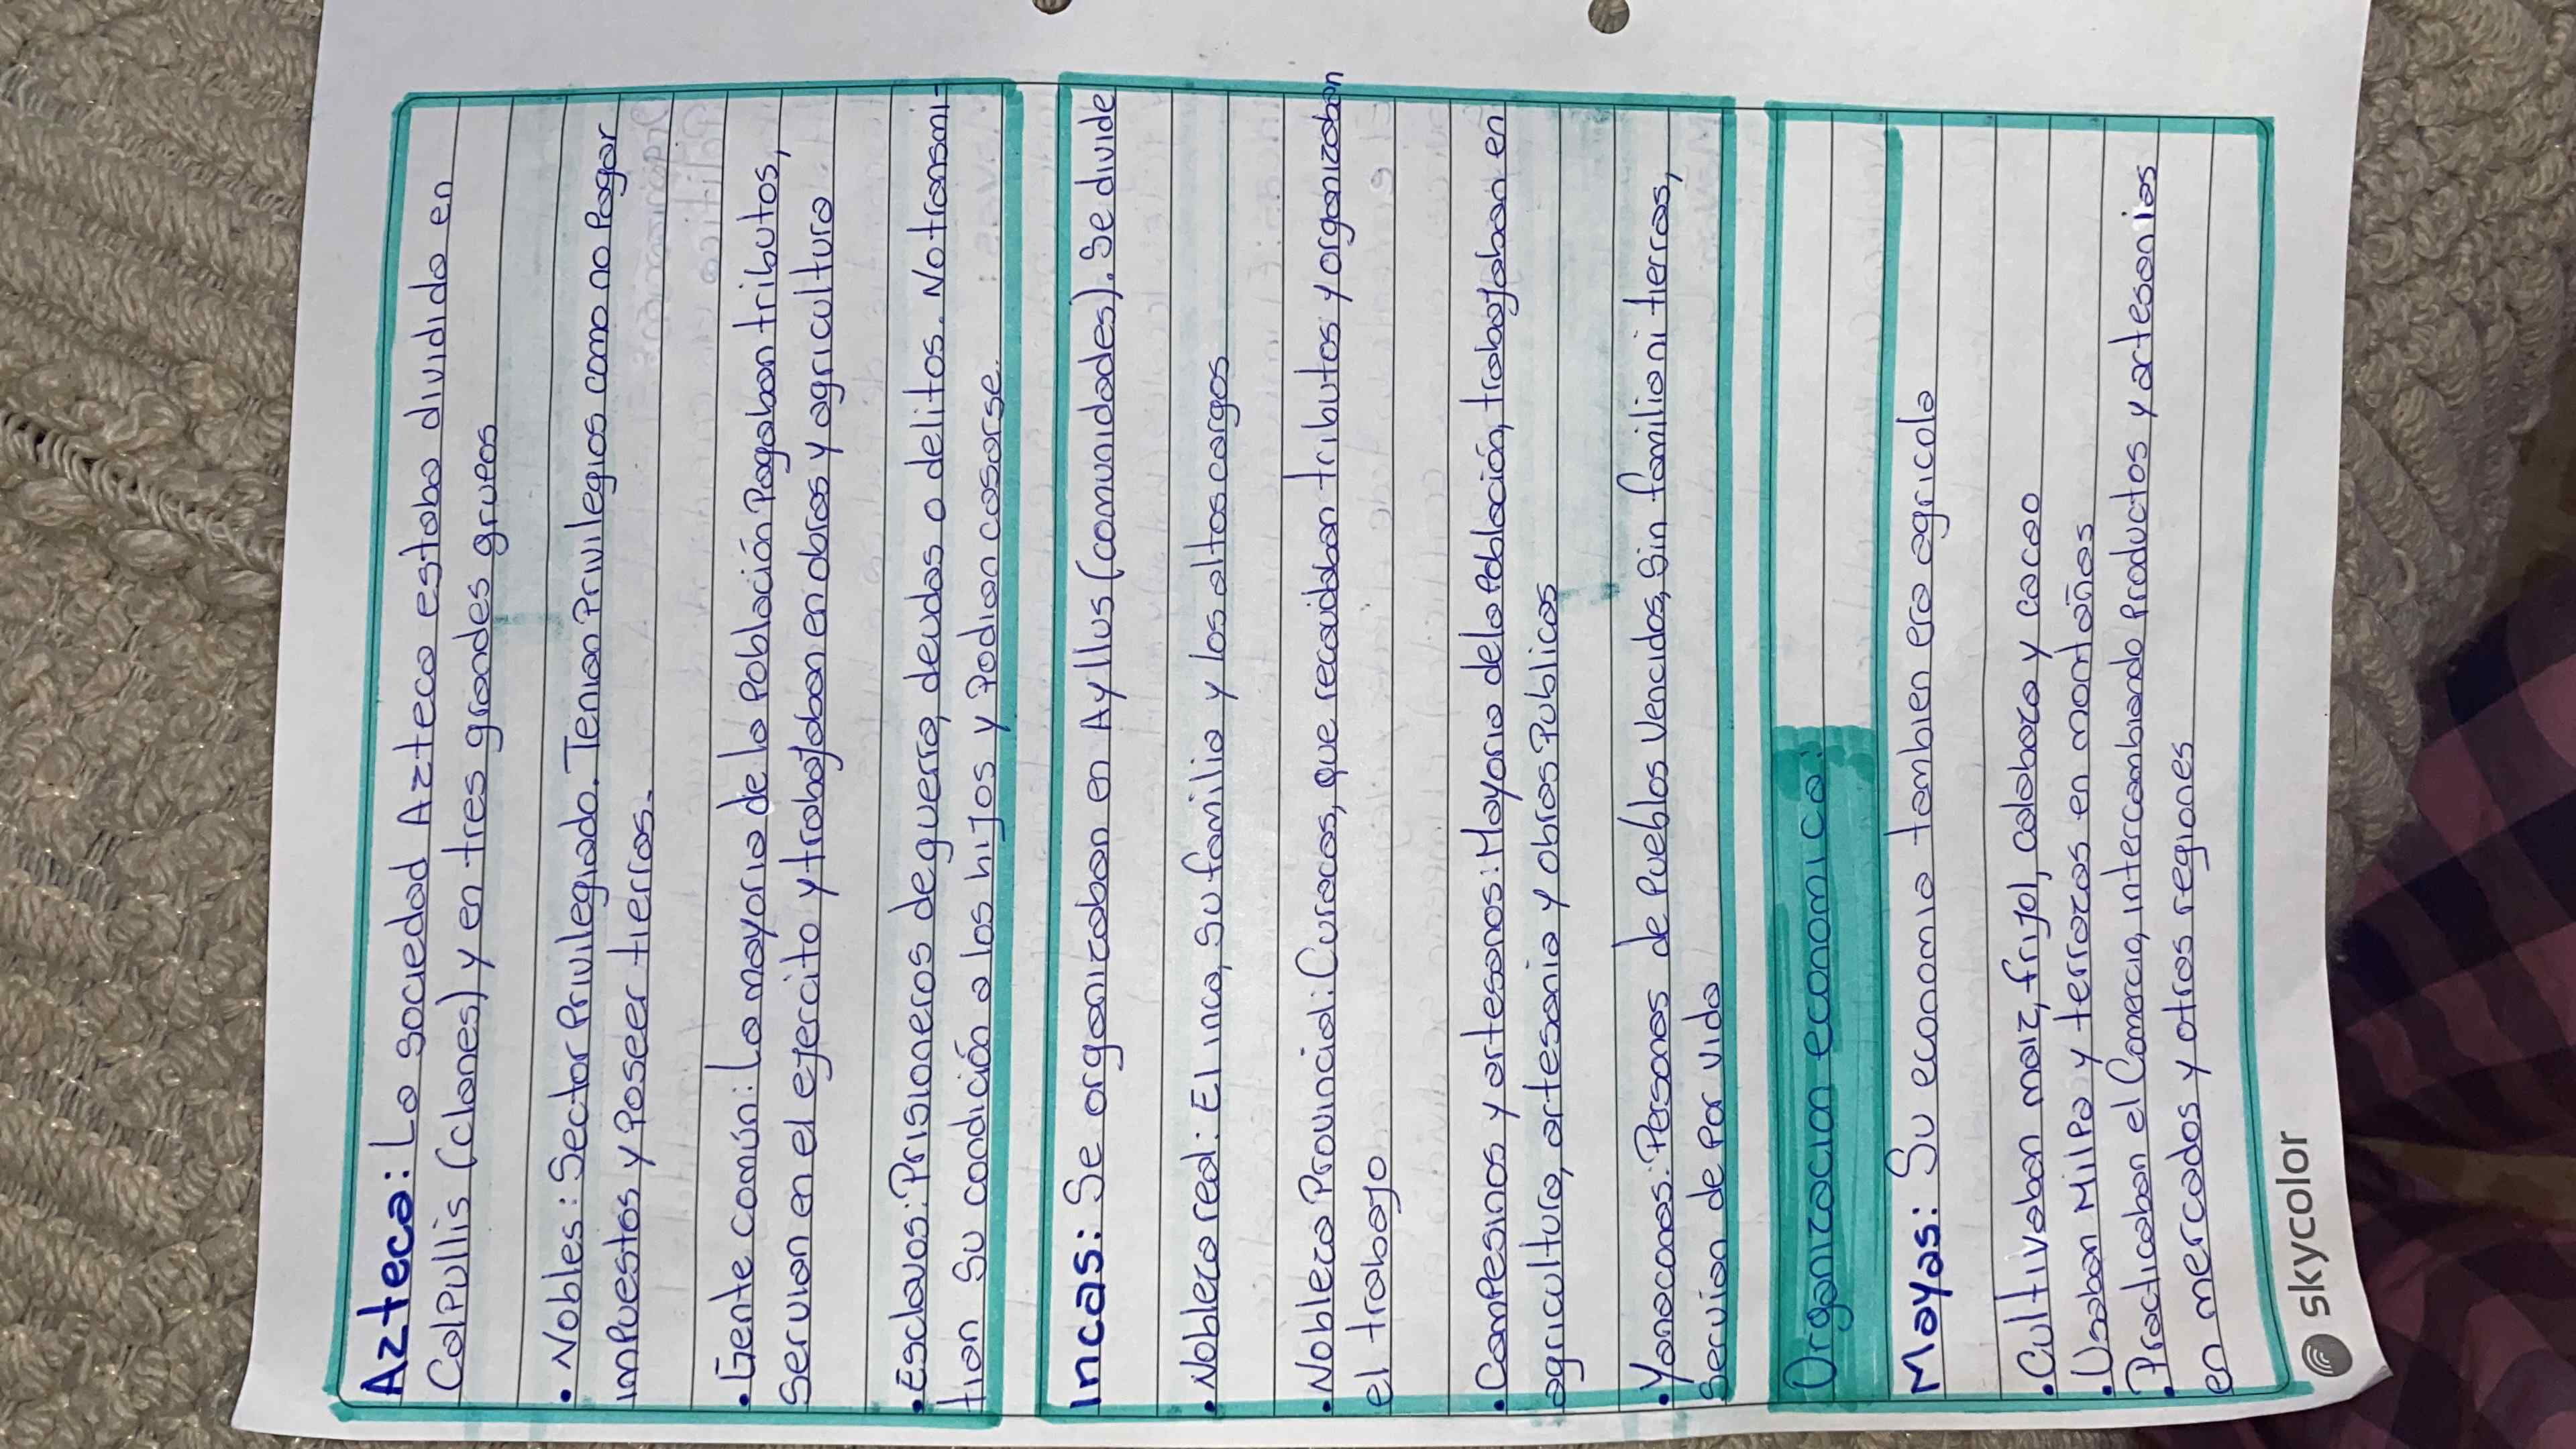 Azteca: La sociedad Azteca estaba dividida en
Calpullis (clanes) y en tres grandes grupos
• Nobles: Sector Privilegiado. Tenian Privilegios como no Pagar
impuestos y Poseer tierras.
• Gente común: La mayoria de la Población Pagaban tributos,
Servian en el ejercito y trabajaban en obras y agricultura
• Esclavos: Prisioneros de guerra, deudas o delitos. No transmi-
tian su condición a los hijos y Podian casarse.
Incas: Se organizaban en Ayllus (comunidades). Se divide
• Nobleza real: El inca, Su familia y los altos cargos
• Nobleza Provincial: Curacas, que recaudaban tributos y organizaban
el trabajo
• Campesinos y artesanos: Mayoria de la Población, trabajaban en
agricultura, artesania y obras Publicas
• Yanaconas: Personas de Pueblos Vencidos, Sin familia ni tierras,
Servian de Por vida
Organizacion economica:
Mayas: Su economia tambien era agricola
• Cultivaban maiz, frijol, calabaza y cacao
• Usaban Milpa y terrazas en montañas
• Practicaban el Comercio, intercambiando Productos y artesanias
en mercados y otras regiones
skycolor